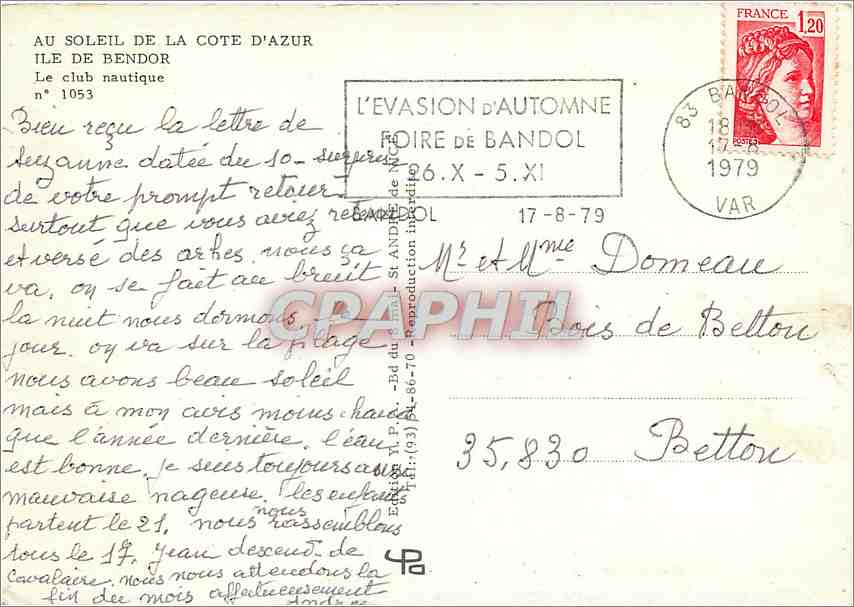 AU SOLEIL DE LA COTE D'AZUR
ILE DE BENDOR
Le club nautique
n° 1053
Bien reçu la lettre de
Suzanne datée du 10 - surpris
de votre prompt retour
surtout que vous aviez
et versé des arhes. nous ça
va, on se fait au breuit
la nuit nous dormons. le
jour. on va sur la plage
nous avons beau soleil
mais à mon avis moins chaud
que l'année dernière. l'eau
est bonne. je suis toujours aussi
mauvaise nageuse. les enfants
partent le 21. nous nous rassemblons
tous le 17. Jean descend de
Cavalaire. nous nous attendons la
fin du mois affectueusement
Andrée
Edition - Bd du 8 mai - St ANDRE de NICE
Tél: (93) 54-86-70 - Reproduction interdite
L'EVASION D'AUTOMNE
FOIRE DE BANDOL
26.X - 5.XI
BANDOL 17-8-79
FRANCE 1,20
POSTES
83 BANDOL
18
17-8
1979
VAR
Mr et Mme Domeau
Bois de Betton
35.830 Betton
CPAPHIL